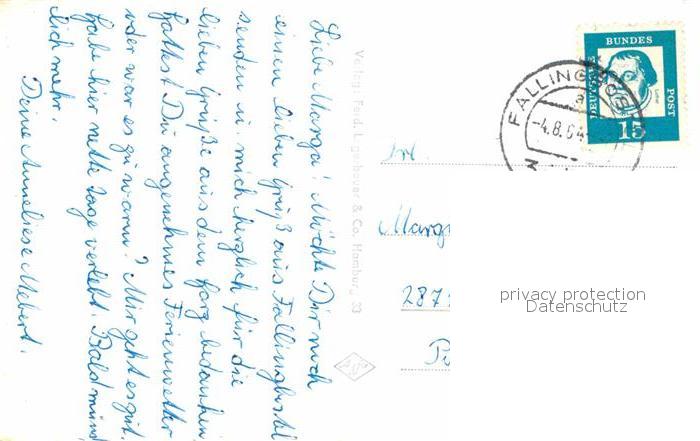 Liebe Marga! Möchte Dir noch
einen lieben Gruß aus Fallingbostel
senden u. mich herzlich für die
lieben Grüße aus dem Harz bedanken.
Hattest Du angenehmes Ferienwetter
oder war es zu warm? Mir geht es gut.
Habe hier nette Tage verlebt. Bald münd-
lich mehr.
Deine Anneliese
Verlag: Ferd. Lagerbauer & Co. Hamburg 33
FALLINGBOS
a
-4.8.64
DEUTSCHE
BUNDES
POST
15
Frl.
Marg
287
privacy protection
Datenschutz